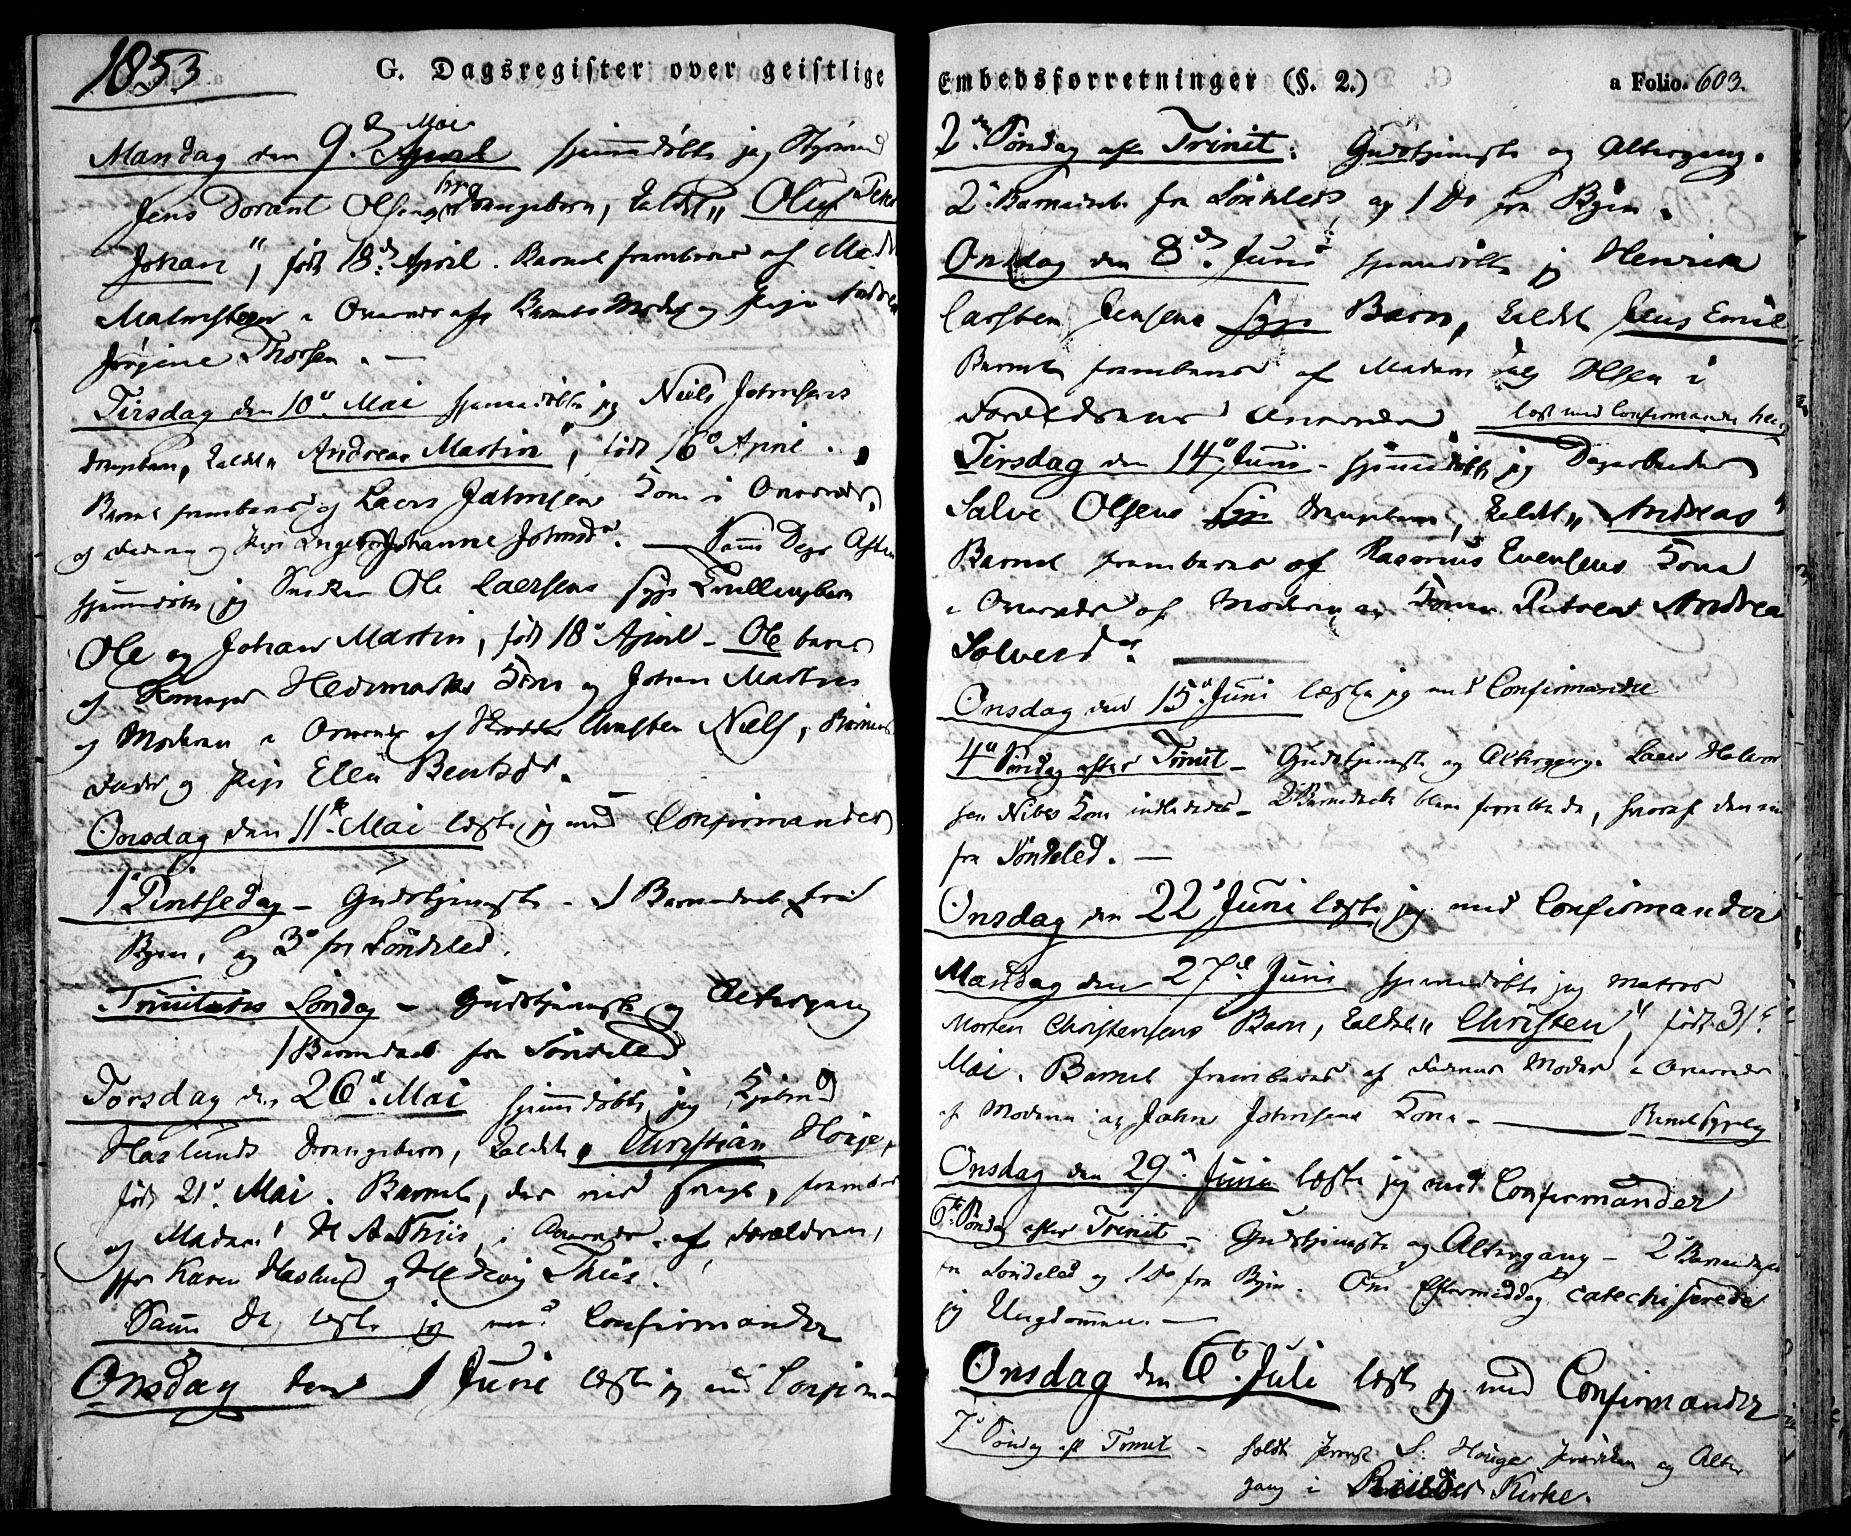 1853
G. Dagsregister over geistlige
Mandag den 9. April Mai hjemmedøbte jeg Styrmd
Jens Dorant Olsens syge Drengebarn, kaldet "Oluf
Johan", født 18de April. Barnet frembaaret af Mad.
Malmsteen i Overvær af Barnets Moder og Pige
Jørgine Thorsen. —
Tirsdag den 10de Mai hjemmedøbte jeg Niels Johnsens
Drengebarn, kaldet "Andreas Martin", født 16de April.
Barnet frembaaret af Laers Johnsens Kone i Overvær
af Faderen og Pige Johanne Johnsdr. — Samme Dags Aften
hjemmedøbte jeg Snedker Ole Laersens syge Tvillingebørn
Ole og Johan Martin, født 18de April — Ole baaret
af Hedemarks Kone og Johan Martin
af Moderen i Overvær af Skrædder Christen Niels,
Fader og Pige Ellen Bentsdr.
Onsdag den 11te Mai læste jeg med Confirmander
1ste Pintsedag — Gudstjeneste — 1 Barnedaab fra
Byen, og 3de fra Søndeled.
Trinitatis Søndag — Gudstjeneste og Altergang
1 Barnedaab fra Søndeled
Torsdag den 26de Mai hjemmedøbte jeg Kjøbmd
Haslunds Drengebarn, kaldet "Christian Houge,
født 21de Mai. Barnet, der var svagt, frembar
af Madam H A Thiis, i Overvær af Forældrene,
Karen Haslund og Hedevig Thiis.
Samme D. læste jeg med Confirmander
Onsdag den 1 Juni læste jeg med Confirman
Embedsforretninger (§. 2.)
a Folio. 603.
2den Søndag efter Trinit: Gudstjeneste og Altergang.
2de Barnedaab fra Søndeled og 1 Do fra Byen.
Onsdag den 8de Juni hjemmedøbte jeg Henrik
Carsten Jensens syge Barn, kaldet Jens Emil
Barnet frembaaret af Madam Olsen i
Forældrenes Overvær læst med Confirmander
Tirsdag den 14de Juni hjemmedøbte jeg Dagarbeider
Salve Olsens syge Drengebarn, kaldet "Andreas"
Barnet frembaaret af Rasmus Evensens Kone
i Overvær af Moderen og Konen Petrea Andrea
Solvesdr.
Onsdag den 15de Juni læste jeg med Confirmander
4de Søndag efter Trinit — Gudstjeneste og Altergang. Laers Halvor
sen Nibes Kone indledet — 2 Barnedaab blev forrettede, hvoraf den ene
fra Søndeled. —
Onsdag den 22de Juni læste jeg med Confirmander
Mandag den 27de Juni hjemmedøbte jeg Matros
Morten Christensens Barn, kaldet "Christen", født 31te
Mai. Barnet frembaaret af Faderens Moder i Overvær
af Moderen og John Johnsens Kone —
Onsdag den 29de Juni læste jeg med Confirmander
6te Søndag efter Trinit — Gudstjeneste og Altergang — 2de Barnedaab
fra Søndeled og 1 Do fra Byen. Om Eftermiddag catechiserede
jeg Ungdommen. —
Onsdag den 6te Juli læste jeg med Confirmander
7de Søndag eft Trinit — holdt Houger Prædiken og Alter
gang i Riisøer Kirke.